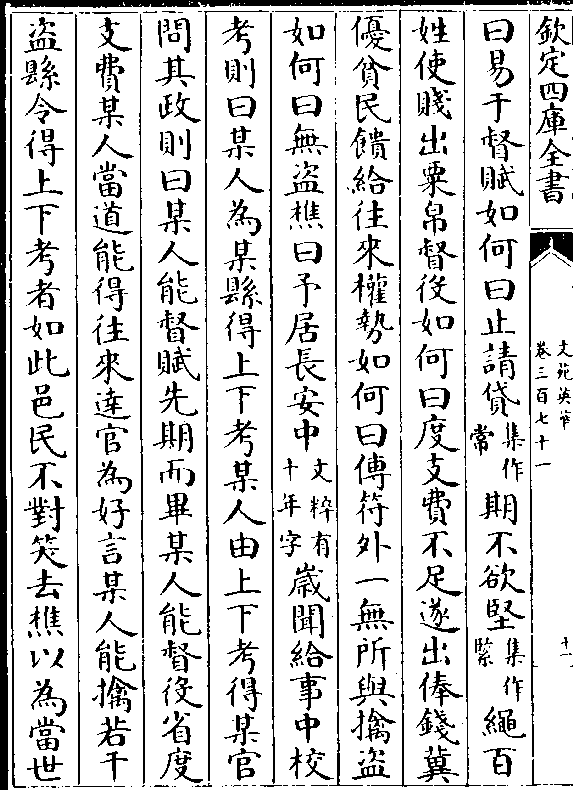 欽定四庫全書
文苑英華
卷三百七十一
十一
曰易于督賦如何曰止請貸集作常期不欲堅集作緊繩百
姓使賤出粟帛督役如何曰度支費不足遂出俸錢冀
優貧民饋給往來權勢如何曰傳符外一無所與擒盜
如何曰無盜樵曰予居長安中文粹有十年字歲聞給事中校
考則曰某人為某縣得上下考某人由上下考得某官
問其政則曰某人能督賦先期而畢某人能督役省度
支費某人當道能得往來達官為好言某人能擒若干
盜縣令得上下考者如此邑民不對笑去樵以為當世